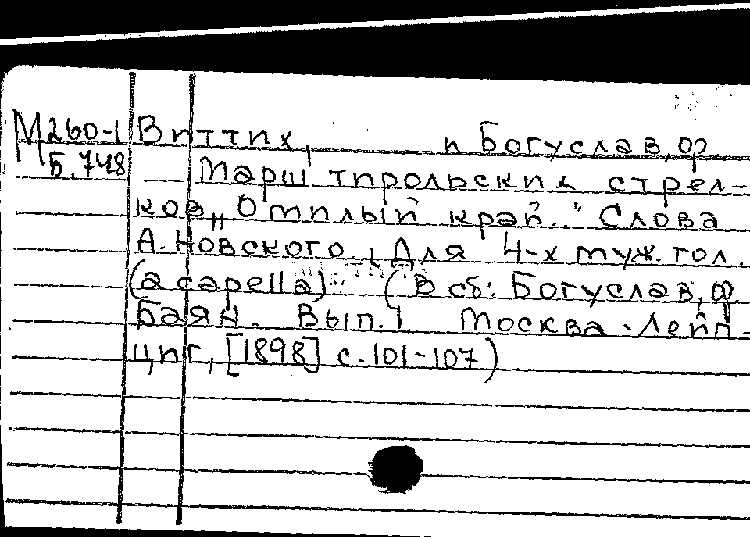 М 260-1 Виттих, и Богуслав, Ф
Б.748 Марш тирольских стрел-
ков „О милый край." Слова
А. Новского, Для 4-х муж. гол.
(a capella) (В сб: Богуслав, Ф
Баян. Вып. 1 Москва-Лейп-
циг, [1898] с. 101-107)